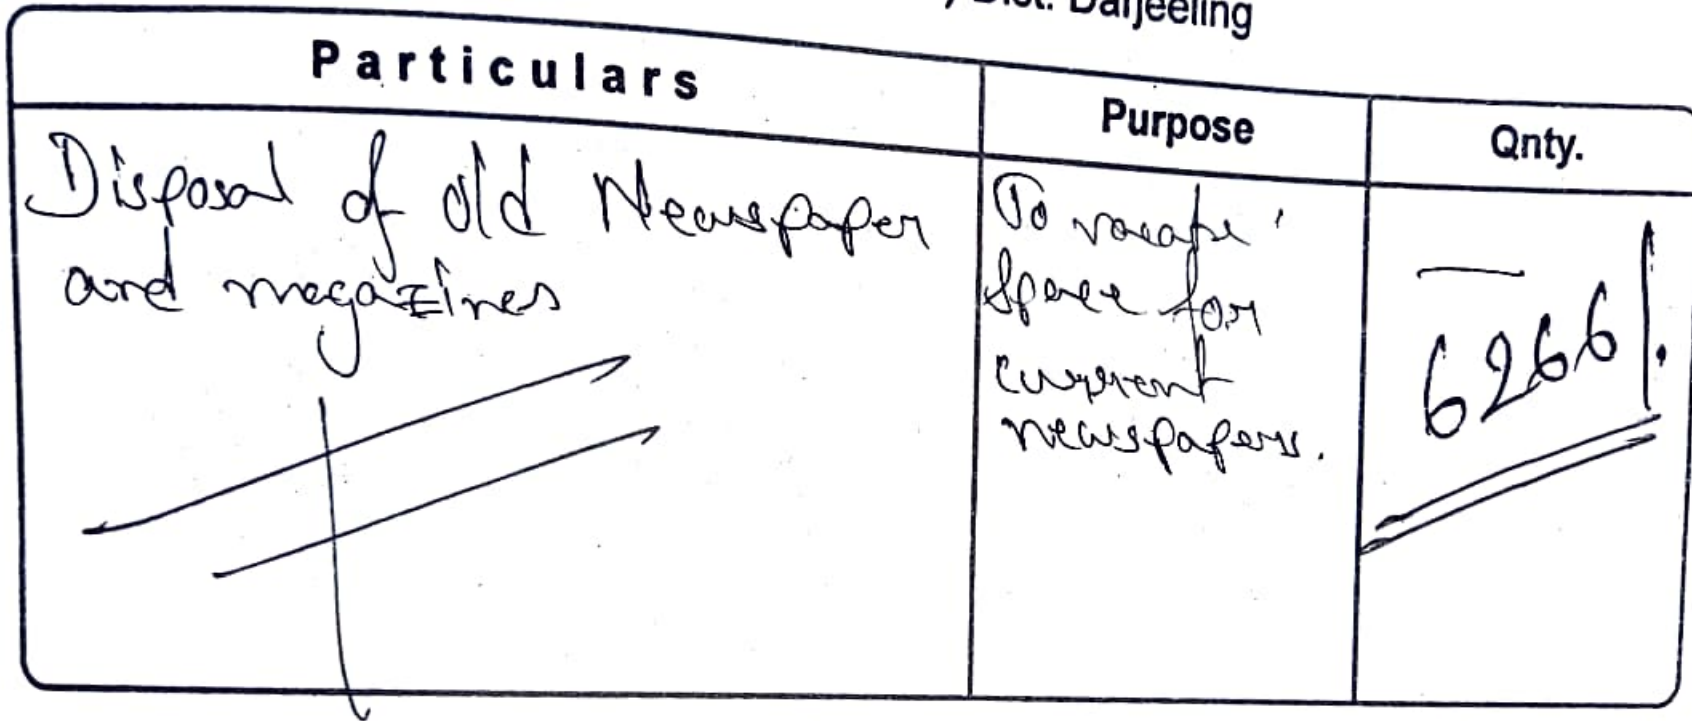 Dist. Darjeeling
Particulars Purpose Qnty.
Disposal of old Newspaper
and megazines
To vacate
space for
current
newspapers.
6266/.